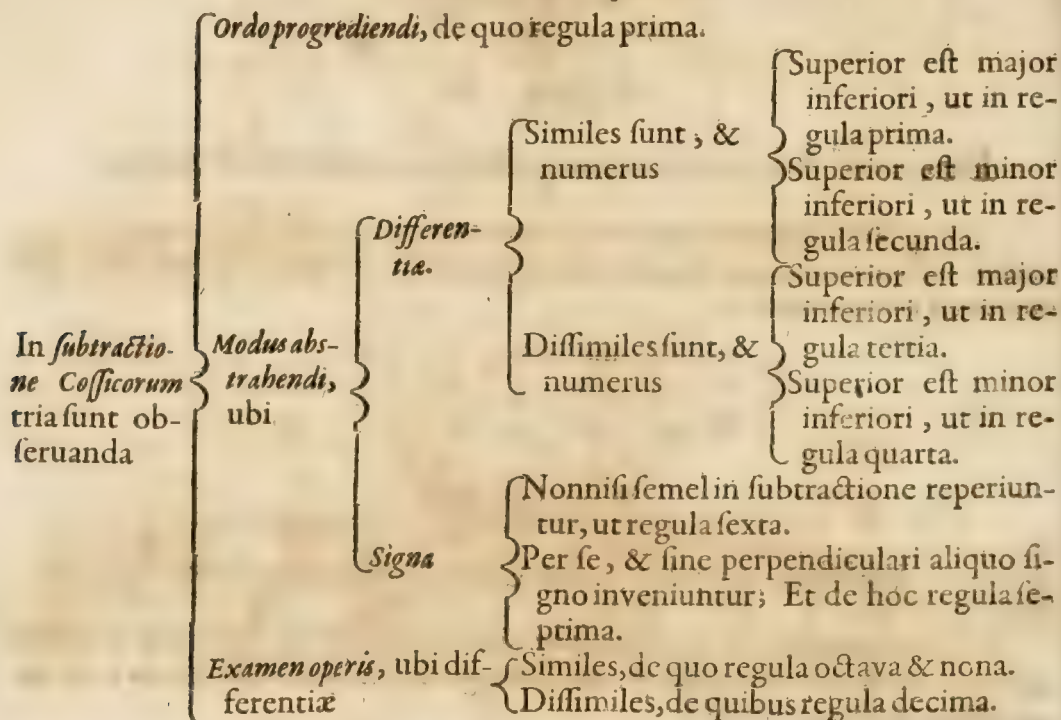 Ordo progrediendi, de quo regula prima.
In subtractio-
ne Cossicorum
tria sunt ob-
seruanda
Modus abs-
trahendi,
ubi
Differen-
tiæ.
Similes sunt, &
numerus
Superior est major
inferiori, ut in re-
gula prima.
Superior est minor
inferiori, ut in re-
gula secunda.
Dissimiles sunt, &
numerus
Superior est major
inferiori, ut in re-
gula tertia.
Superior est minor
inferiori, ut in re-
gula quarta.
Signa
Nonnisi semel in subtractione reperiun-
tur, ut regula sexta.
Per se, & sine perpendiculari aliquo si-
gno inveniuntur; Et de hoc regula se-
ptima.
Examen operis, ubi dif-
ferentiæ
Similes, de quo regula octava & nona.
Dissimiles, de quibus regula decima.